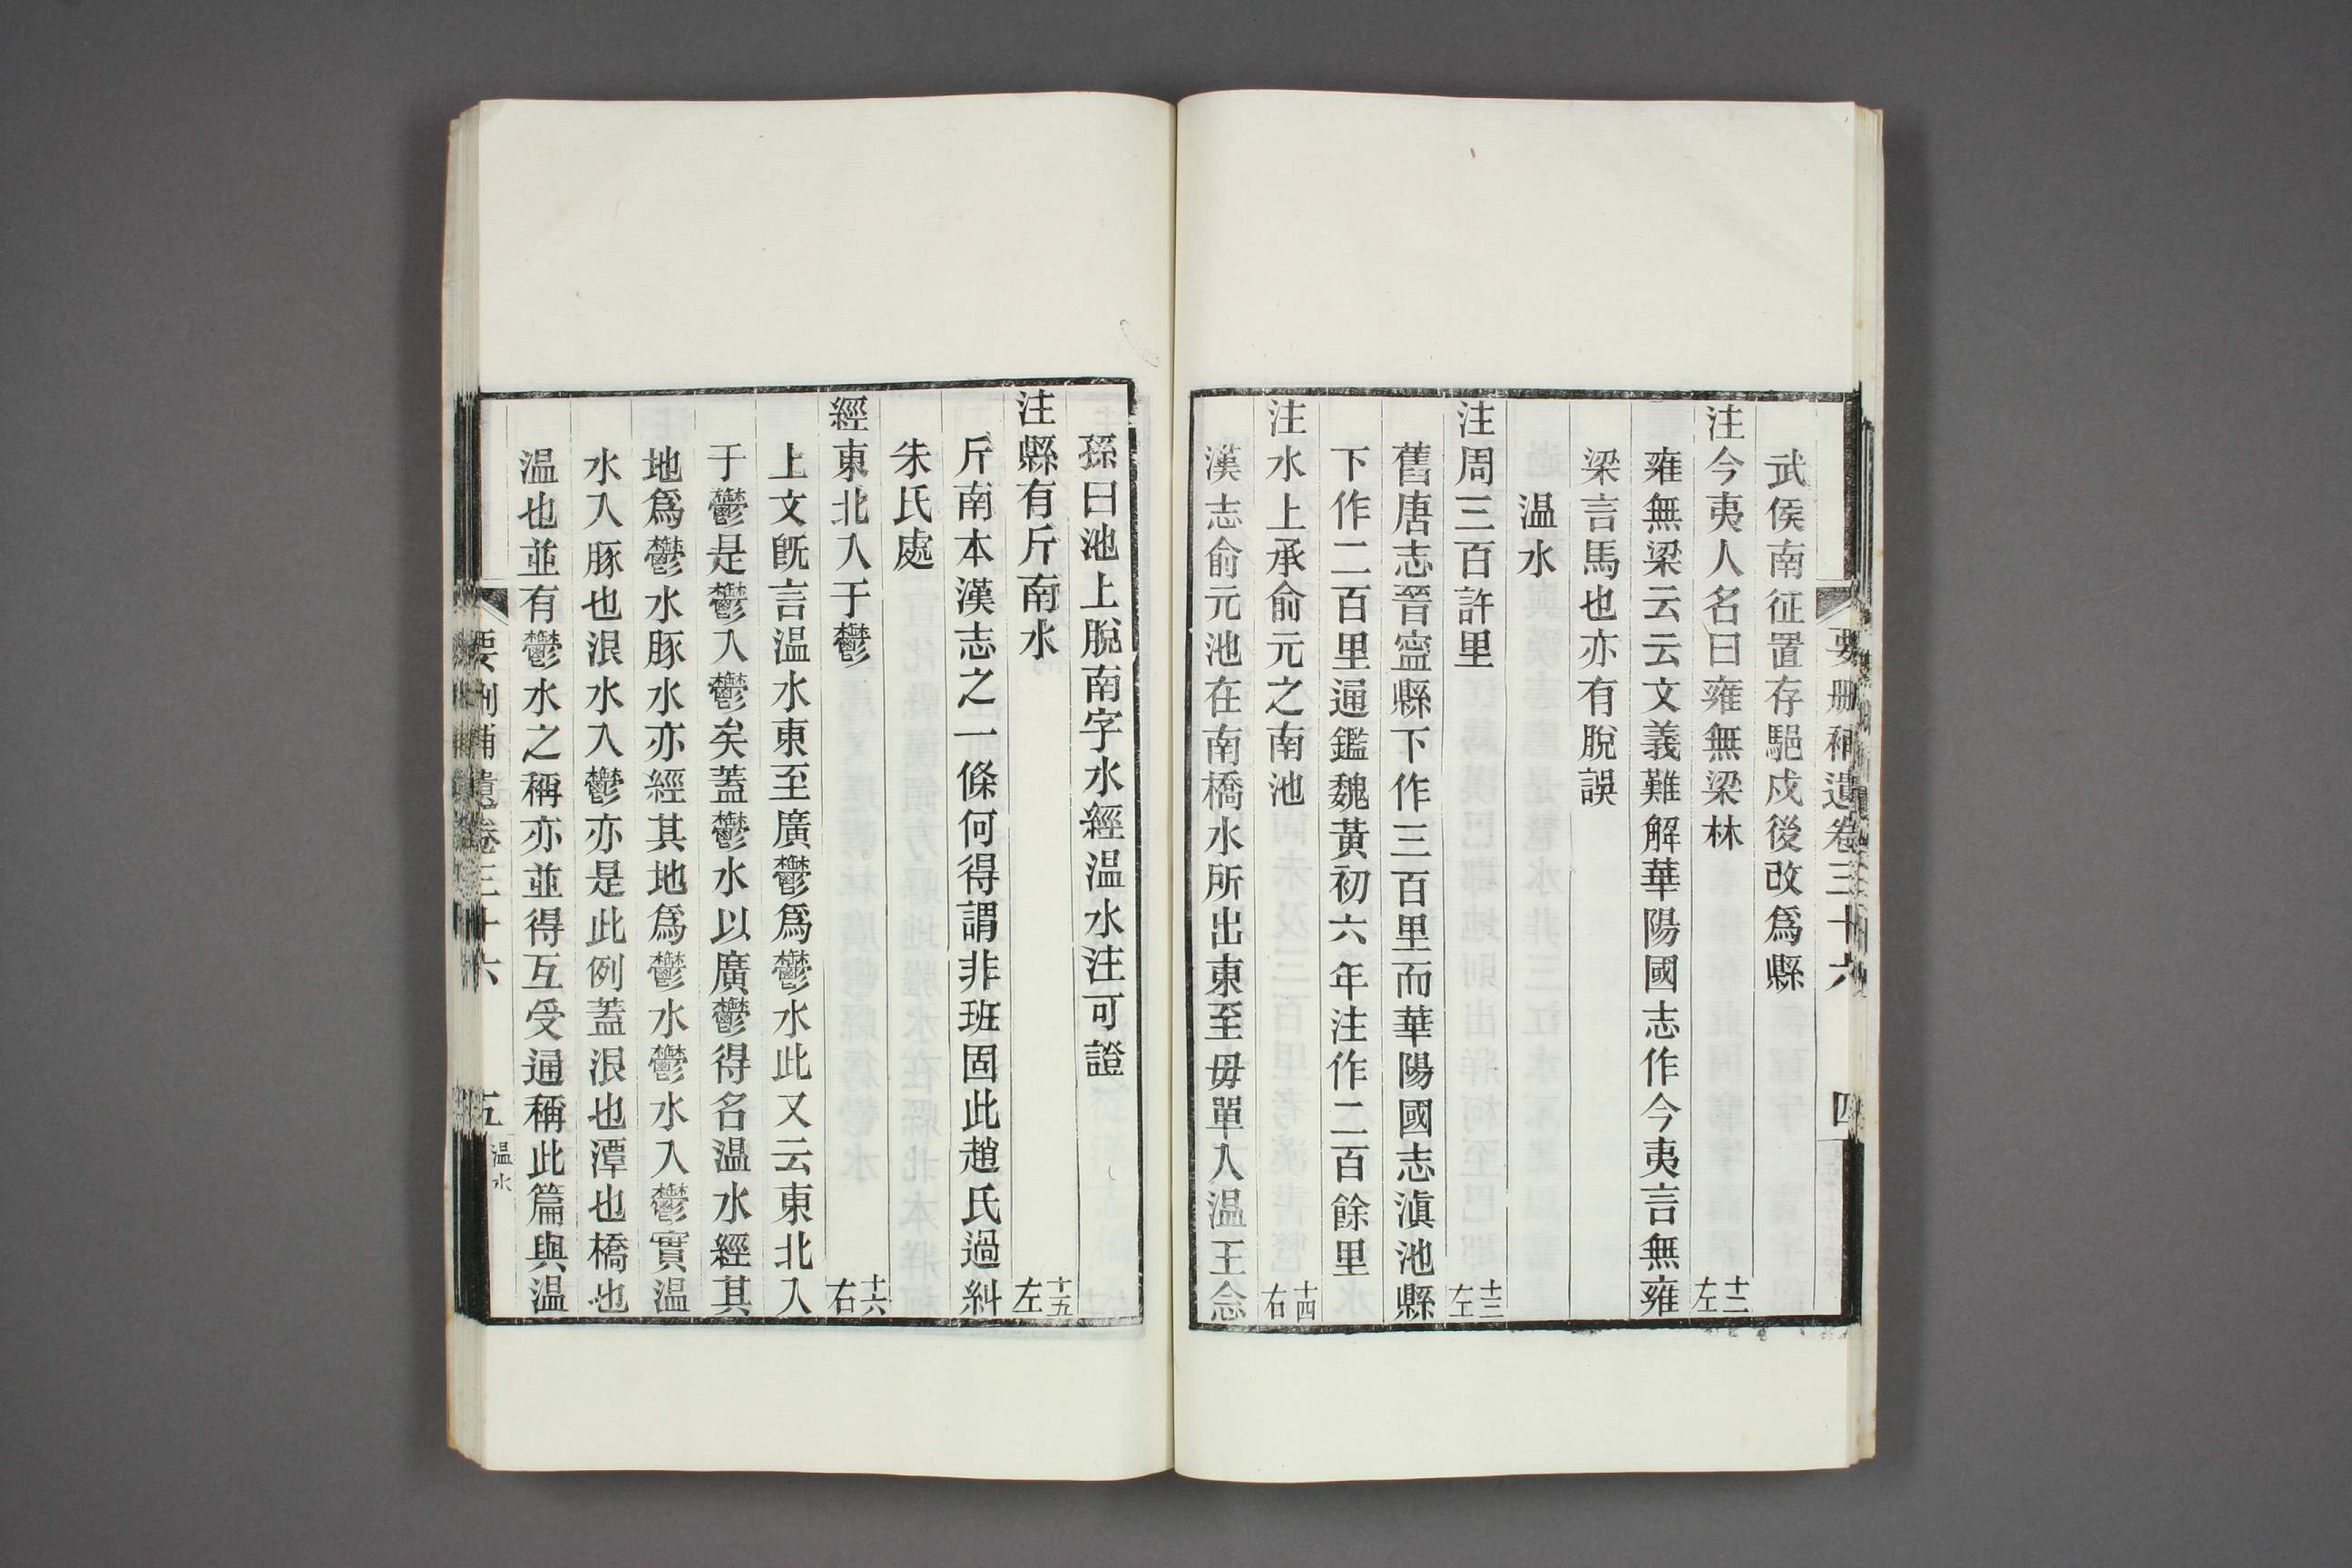 要刪補遺卷三十六 四
武侯南征置存䣕戍後改爲縣
注今夷人名曰雍無梁林 十二左
雍無梁云云文義難解華陽國志作今夷言無雍
梁言馬也亦有脫誤
温水
注周三百許里 十三左
舊唐志晉寧縣下作三百里而華陽國志滇池縣
下作二百里通鑑魏黃初六年注作二百餘里
注水上承俞元之南池 十四右
漢志俞元池在南橋水所出東至毋單入温王念
孫曰池上脫南字水經温水注可證
注縣有斤南水 十五左
斤南本漢志之一條何得謂非班固此趙氏過糾
朱氏處
經東北入于鬱 十六右
上文旣言温水東至廣鬱爲鬱水此又云東北入
于鬱是鬱入鬱矣蓋鬱水以廣鬱得名温水經其
地爲鬱水豚水亦經其地爲鬱水鬱水入鬱實温
水入豚也浪水入鬱亦是此例蓋浪也潭也橋也
温也並有鬱水之稱亦並得互受通稱此篇與温
要刪補遺卷三十六 五 温水